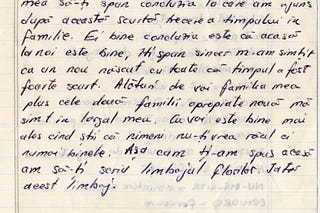 mea să-ți spun concluzia la care am ajuns
după această scurtă trecere a timpului în
familie. Ei bine concluzia este că acasă
la noi este bine, Îți spun sincer m-am simțit
ca un nou născut cu toate că timpul a fost
foarte scurt. Alături de voi familia mea
plus cele două familii apropiate nouă mă
simt în largul meu. Cu voi este bine mai
ales cînd știi că nimeni nu-ți vrea răul ci
numai binele. Așa cum ți-am spus acasă
am să-ți scriu limbajul florilor. Iată
acest limbaj.